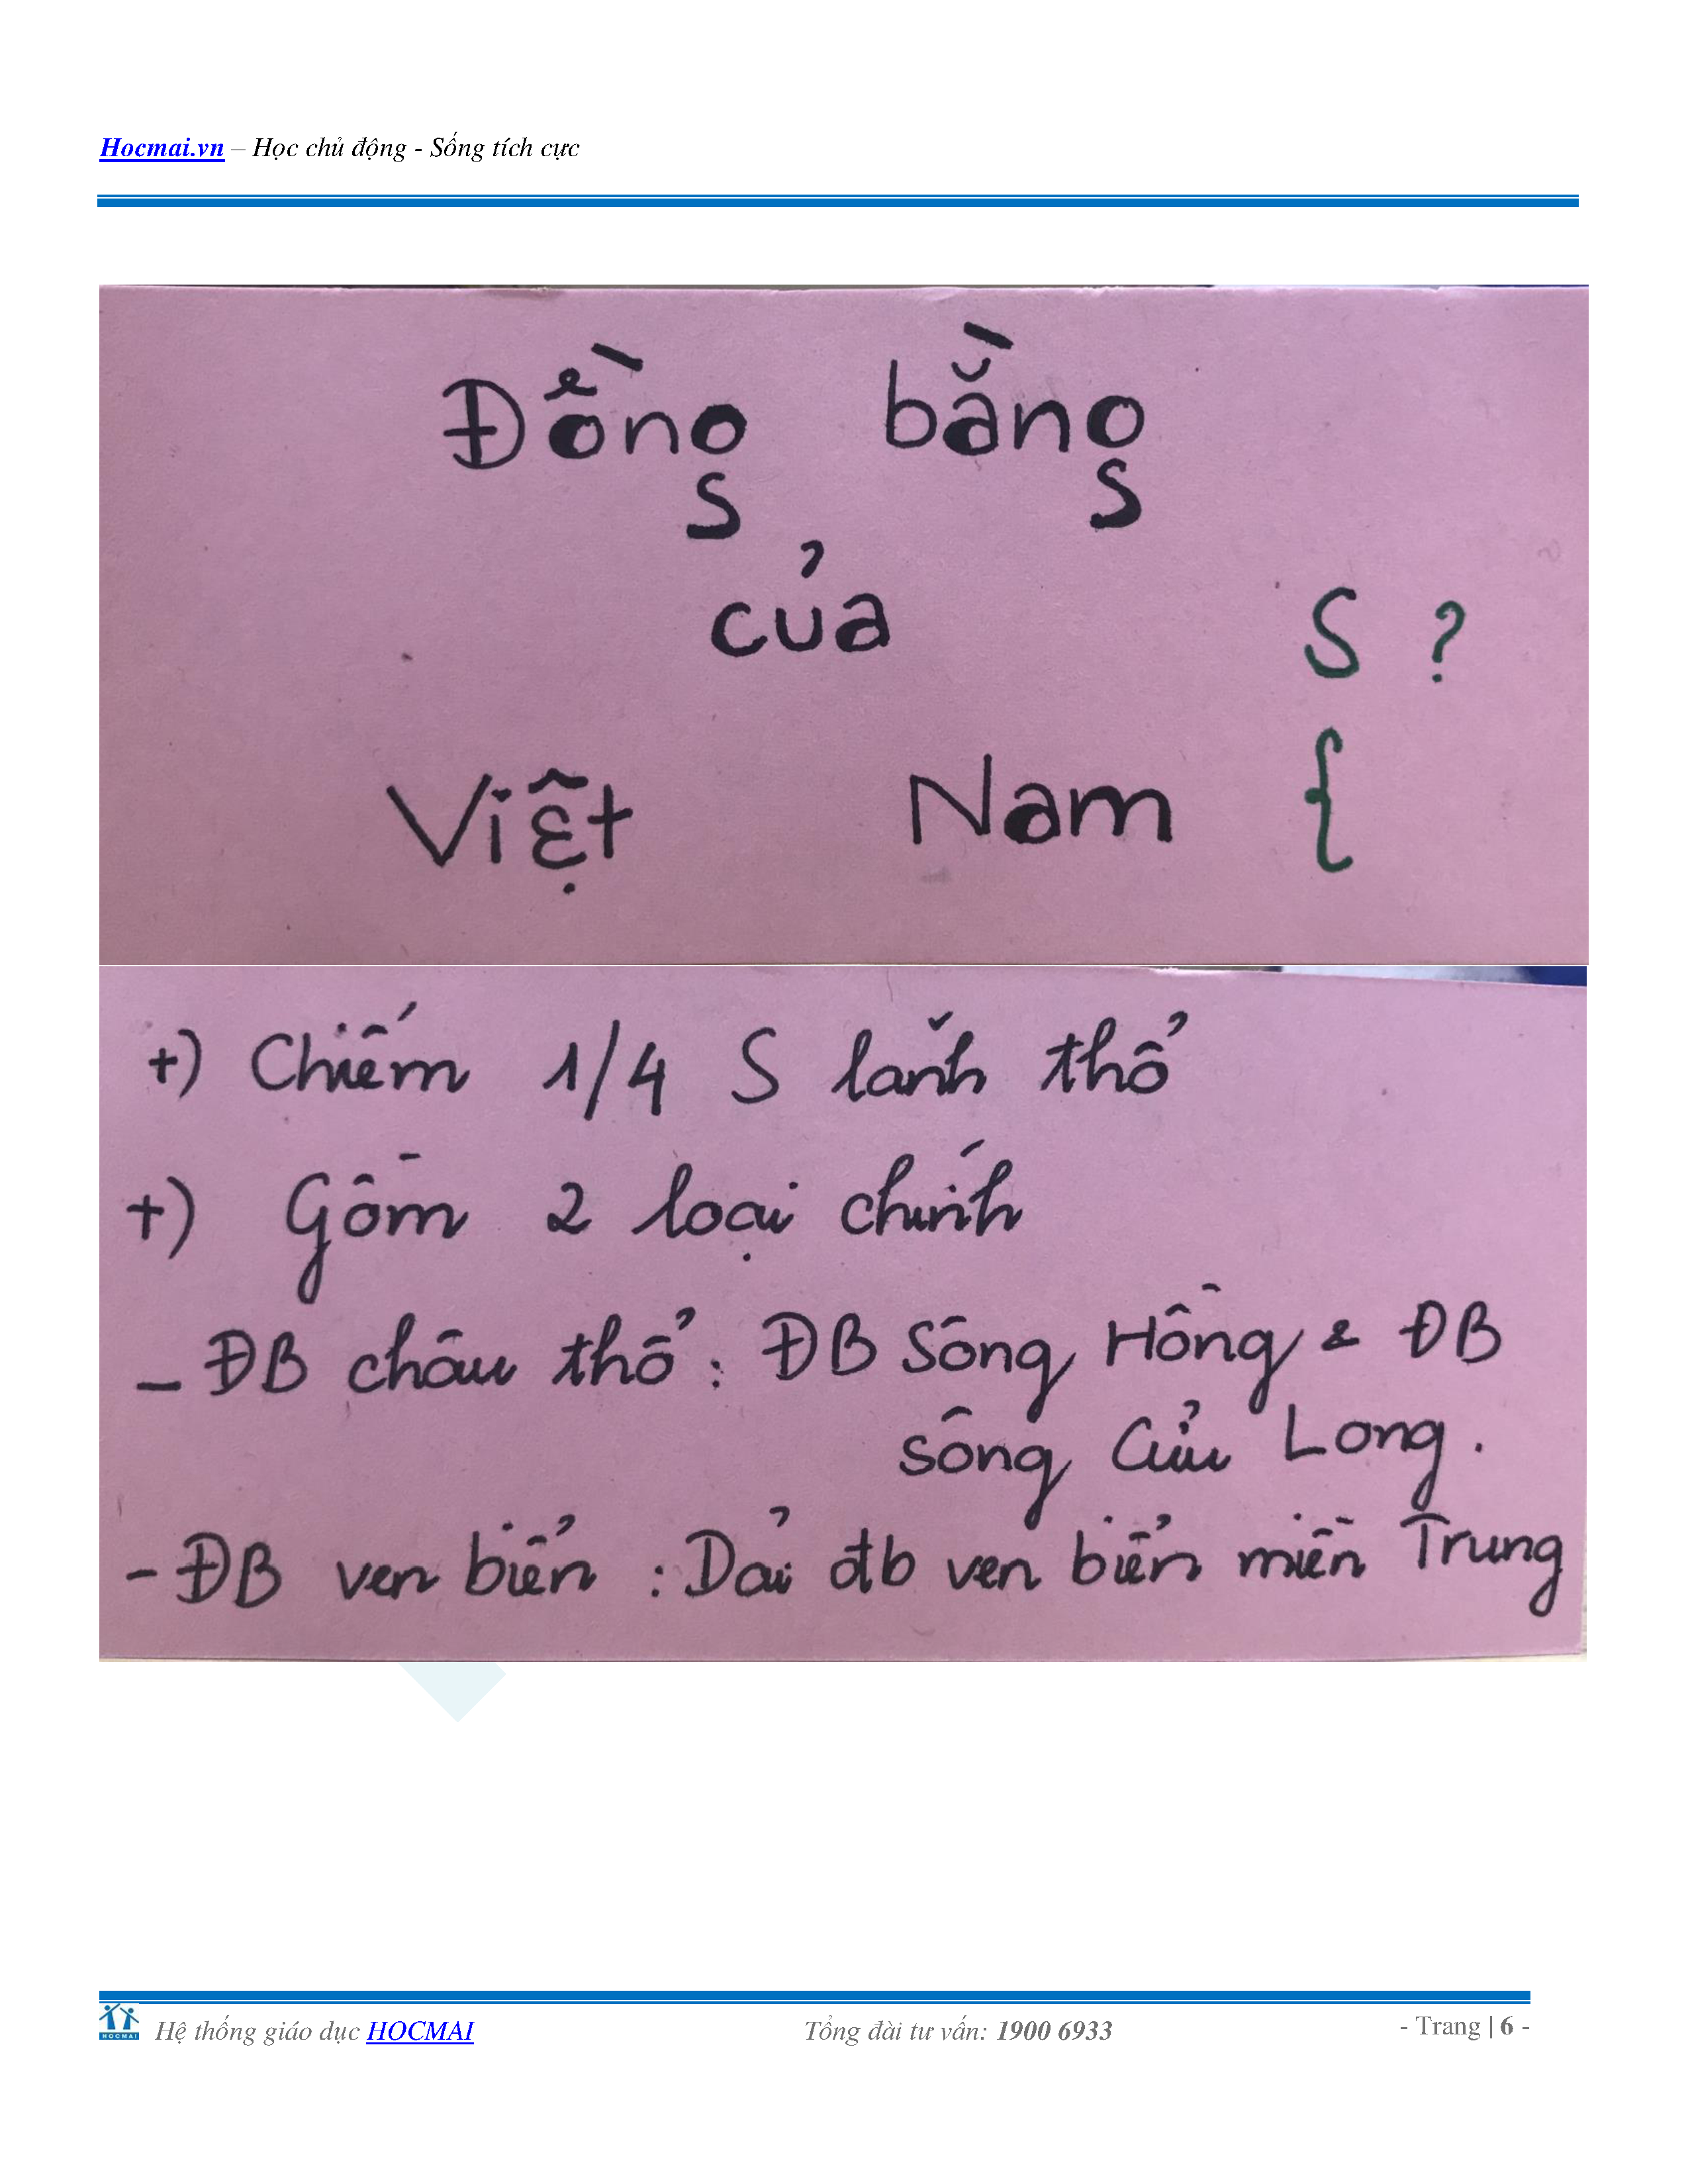 Hocmai.vn – Học chủ động - Sống tích cực
Đồng bằng
của
S ?
Việt Nam {
+) Chiếm 1/4 S lãnh thổ
+) Gồm 2 loại chính
- ĐB châu thổ : ĐB Sông Hồng & ĐB
sông Cửu Long .
- ĐB ven biển : Dải đb ven biển miền Trung
HOCMAI
Hệ thống giáo dục HOCMAI Tổng đài tư vấn: 1900 6933 - Trang | 6 -